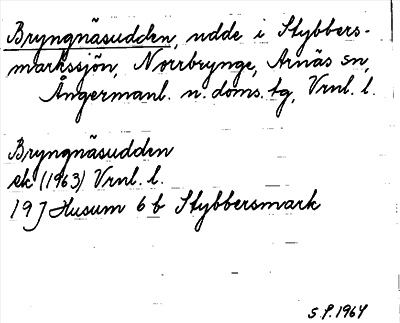 Bryngnäsudden, udde i Stybbers-
markssjön, Norrbrynge, Arnäs sn,
Ångermanl. n. doms. tg, Vrnl. l.
Bryngnäsudden
ek (1963) Vrnl. l.
19 J Husum 6 b Stybbersmark
S.P. 1964